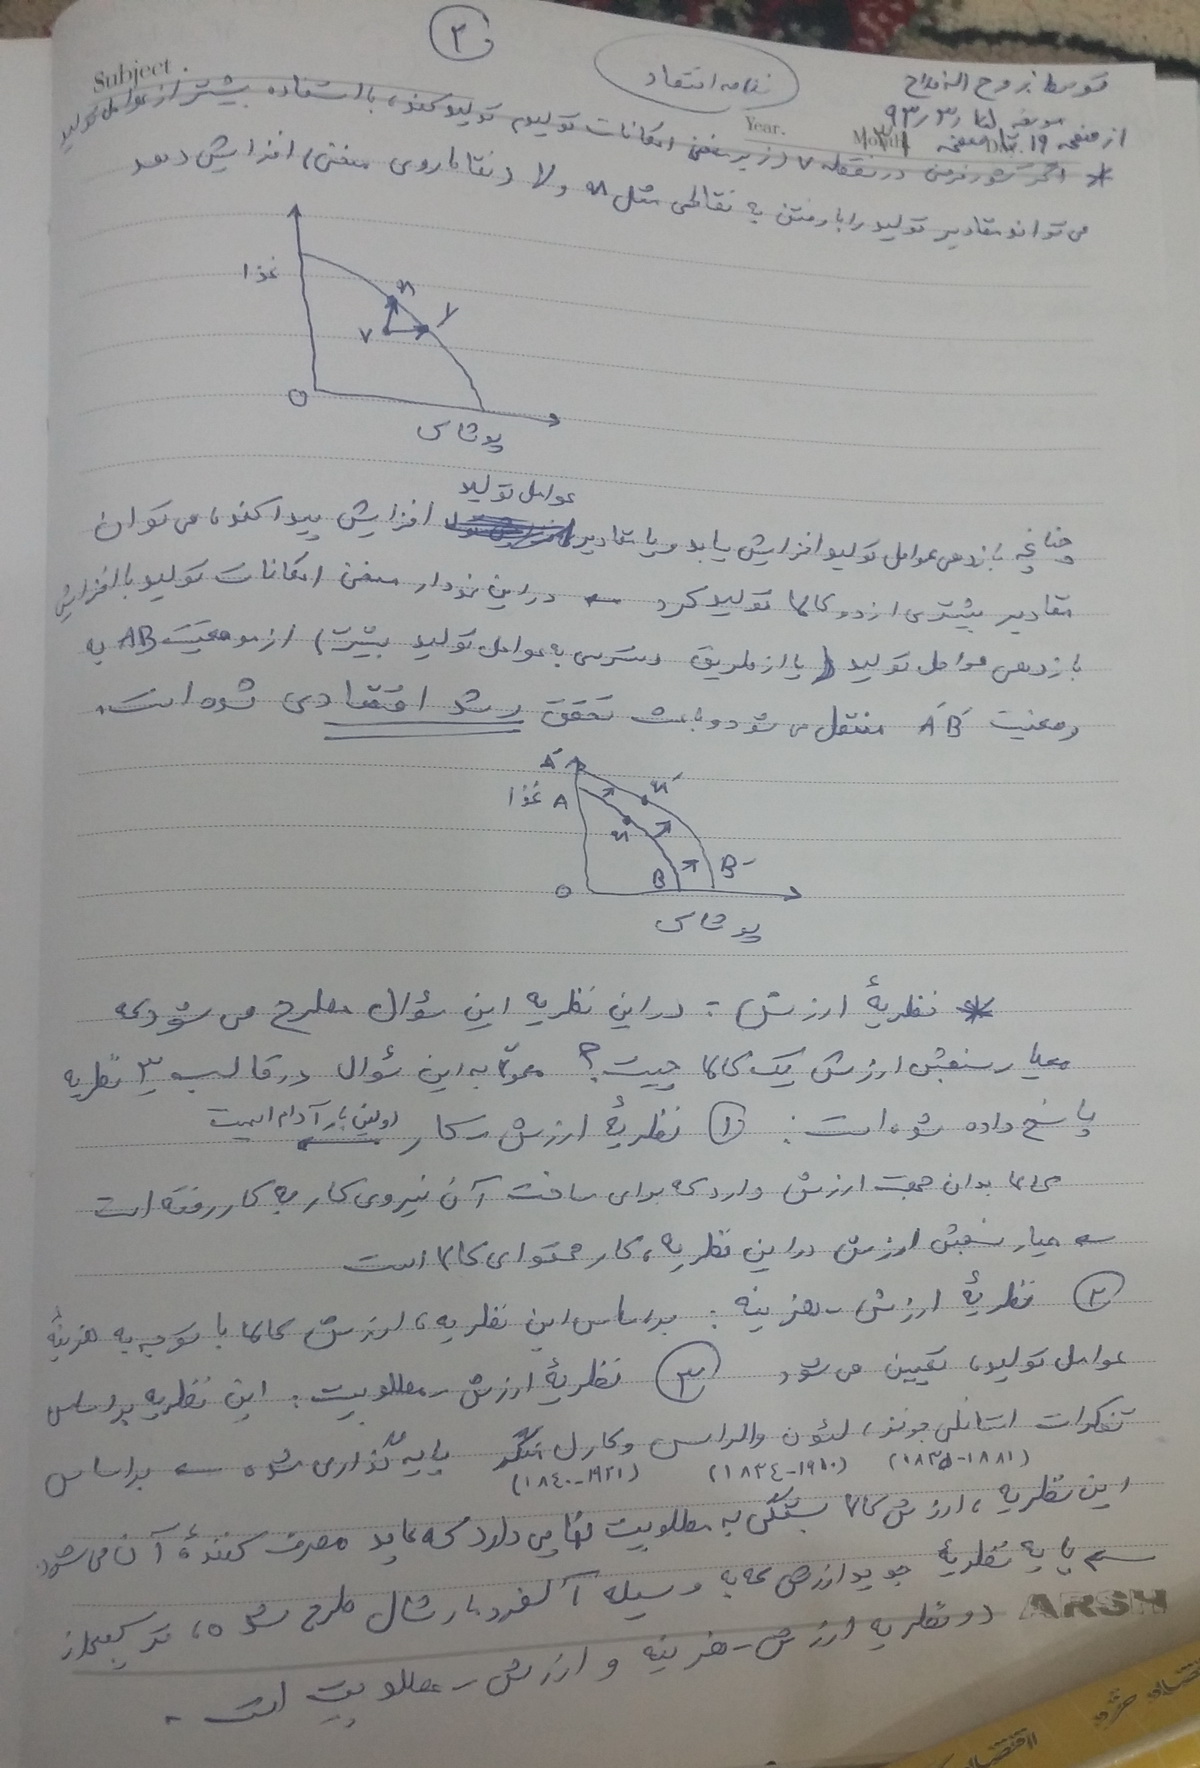 ۲
Subject.
نظام اقتصاد
توسط: روح اله فلاح
Year.
مورخه ۹۳٫۳٫
Month
از صفحه ۱۹ تا صفحه
* اگر کشور فرضی در نقطه V (زیر منحنی امکانات تولید) تولید کند، با استفاده بیشتر از عوامل تولید
می تواند مقادیر تولید را با رفتن به نقاطی مثل x و y (نقاط روی منحنی) افزایش دهد
غذا
x
y
V
O
پوشاک
عوامل تولید
چنانچه بازدهی عوامل تولید افزایش یابد و یا مقادیر افزایش پیدا کند، می توان
مقادیر بیشتری از دو کالا تولید کرد ← در این نمودار منحنی امکانات تولید با افزایش
بازدهی عوامل تولید (یا از طریق دسترسی به عوامل تولید بیشتر) از موقعیت AB به
وضعیت A´B´ منتقل می شود و باعث تحقق رشد اقتصادی شده است.
A´
غذا A
x´
x
B B´
O
پوشاک
* نظریهٔ ارزش: در این نظریه این سؤال مطرح می شود که
معیار سنجش ارزش یک کالا چیست؟ معمولاً به این سؤال در قالب ۳ نظریه
پاسخ داده شده است: ① نظریهٔ ارزش - کار ← اولین بار آدام اسمیت
کالا بدان جهت ارزش دارد که برای ساخت آن نیروی کار به کار رفته است
← معیار سنجش ارزش در این نظریه، کار محتوای کالا است
② نظریهٔ ارزش - هزینه: بر اساس این نظریه، ارزش کالا با توجه به هزینهٔ
عوامل تولید، تعیین می شود ③ نظریهٔ ارزش - مطلوبیت: این نظریه بر اساس
تفکرات استانلی جونز، لئون والراس و کارل منگر پایه گذاری شده ← بر اساس
(۱۸۳۵-۱۸۸۱) (۱۸۳٤-۱۹۱۰) (۱۸٤۰-۱۹۲۱)
این نظریه، ارزش کالا بستگی به مطلوبیت نهایی دارد که عاید مصرف کنندهٔ آن می شود.
← پایه نظریهٔ جدید ارزش که به وسیله آلفرد مارشال طرح شده، ترکیبی از
دو نظریه ارزش - هزینه و ارزش - مطلوبیت است.
ARSH